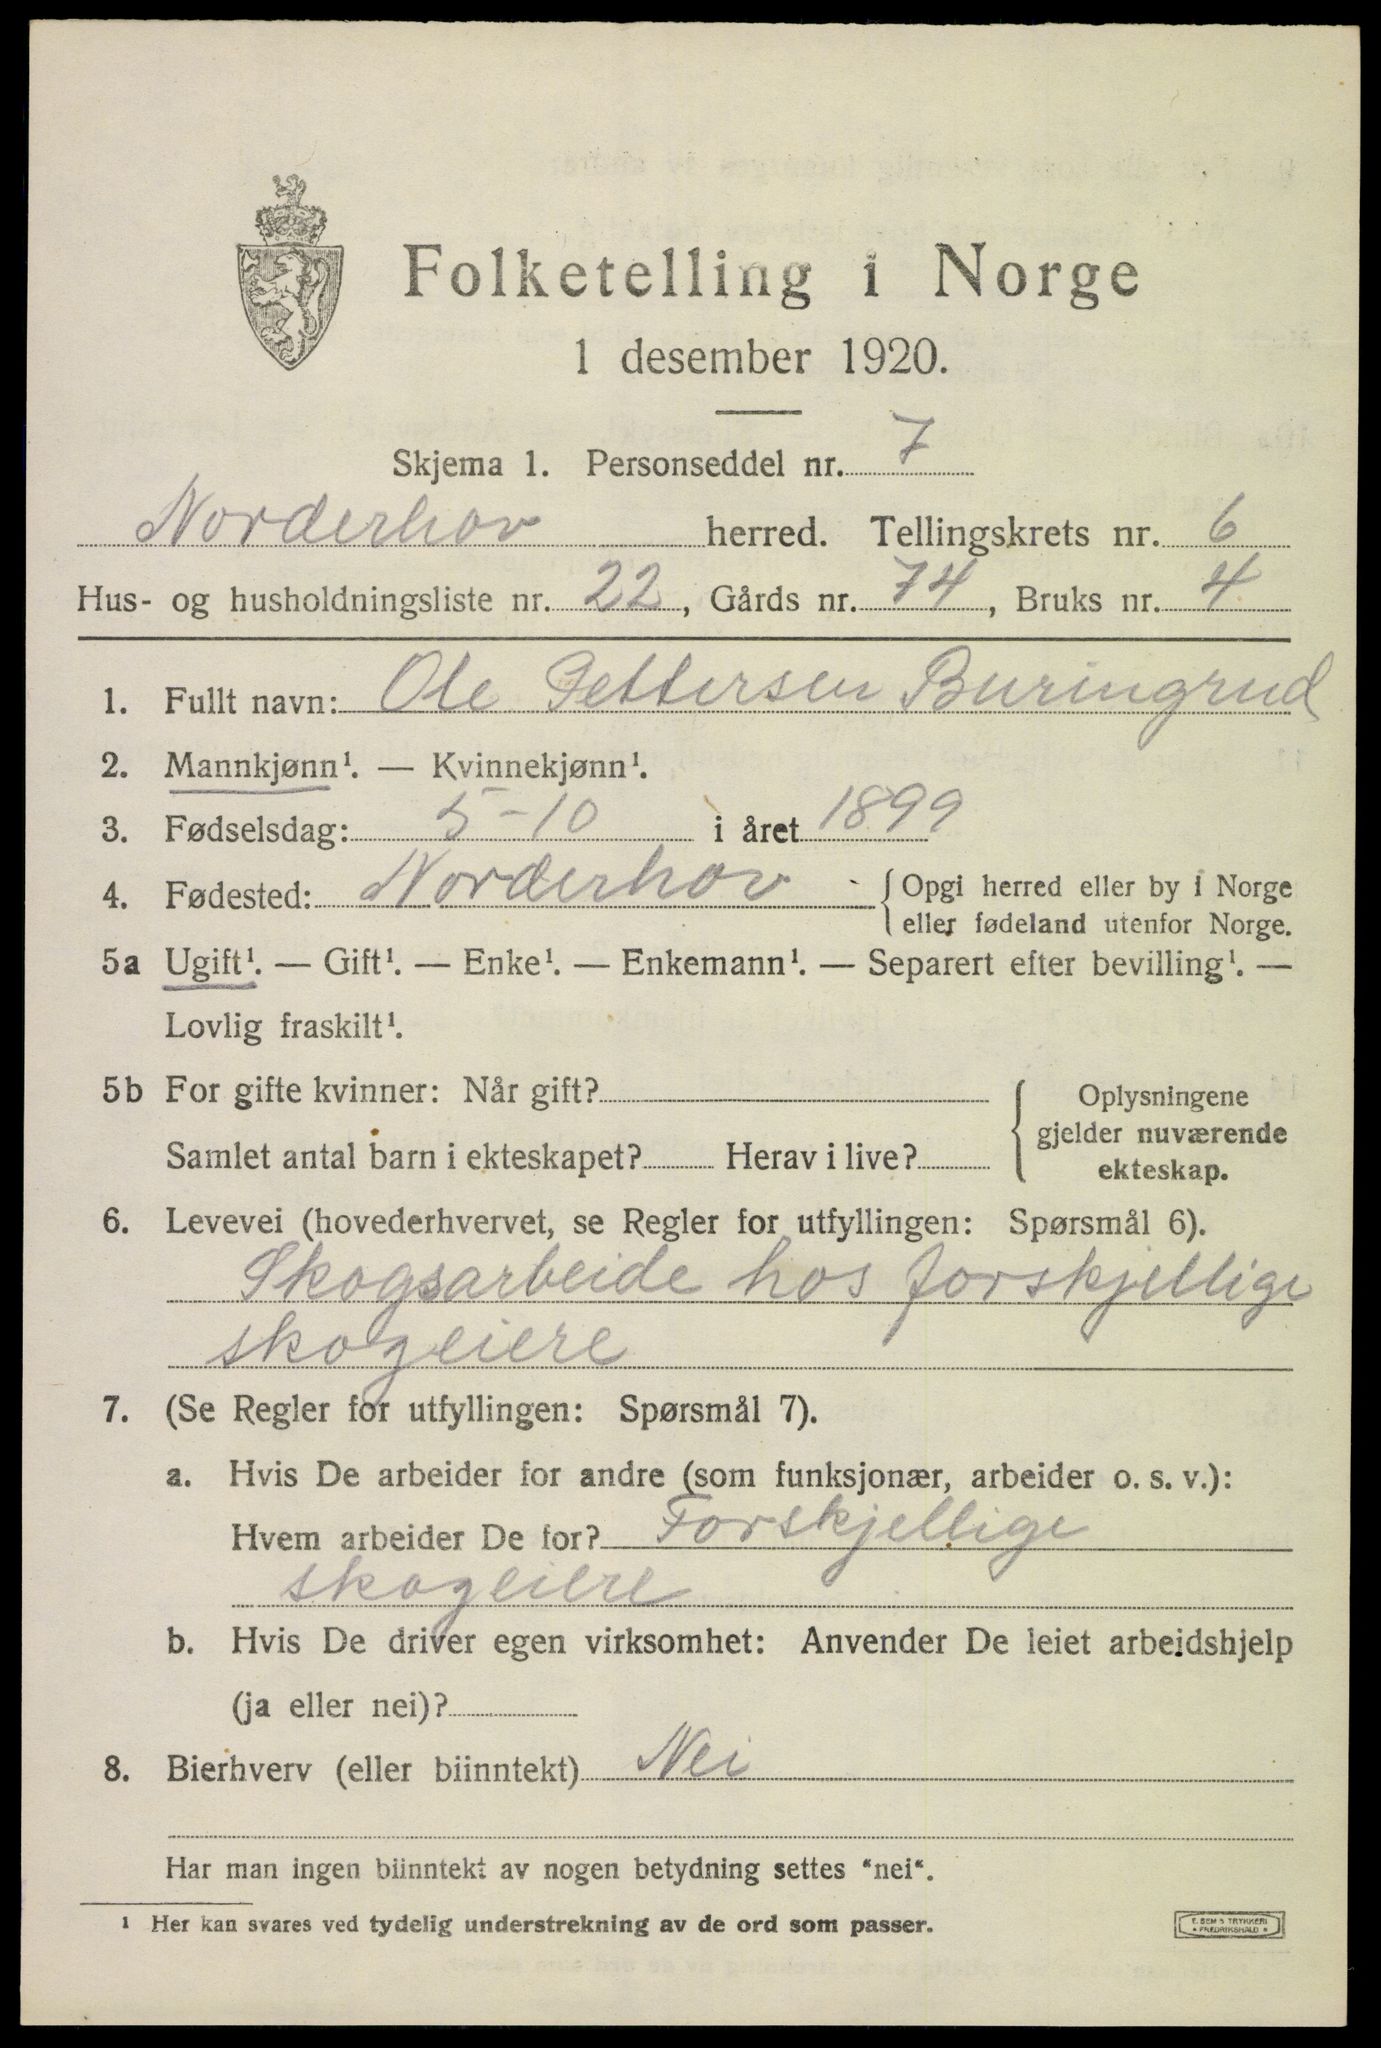 Folketelling i Norge
1 desember 1920.
Skjema 1. Personseddel nr. 7
Norderhov herred. Tellingskrets nr. 6
Hus- og husholdningsliste nr. 22, Gårds nr. 74, Bruks nr. 4
1. Fullt navn: Ole Pettersen Buringrud
2. Mannkjønn¹. — Kvinnekjønn¹.
3. Fødselsdag: 5-10 i året 1899
4. Fødested: Norderhov { Opgi herred eller by i Norge
eller fødeland utenfor Norge.
5a Ugift¹. — Gift¹. — Enke¹. — Enkemann¹. — Separert efter bevilling¹. —
Lovlig fraskilt¹.
5b For gifte kvinner: Når gift?
Samlet antal barn i ekteskapet? Herav i live?
{ Oplysningene
gjelder nuværende
ekteskap.
6. Levevei (hovederhvervet, se Regler for utfyllingen: Spørsmål 6).
Skogsarbeide hos forskjellige
skogeiere
7. (Se Regler for utfyllingen: Spørsmål 7).
a. Hvis De arbeider for andre (som funksjonær, arbeider o. s. v.):
Hvem arbeider De for? Forskjellige
skogeiere
b. Hvis De driver egen virksomhet: Anvender De leiet arbeidshjelp
(ja eller nei)?
8. Bierhverv (eller biinntekt) Nei
Har man ingen biinntekt av nogen betydning settes "nei".
¹ Her kan svares ved tydelig understrekning av de ord som passer.
E. SEM'S TRYKKERI
* FREDRIKSHALD *